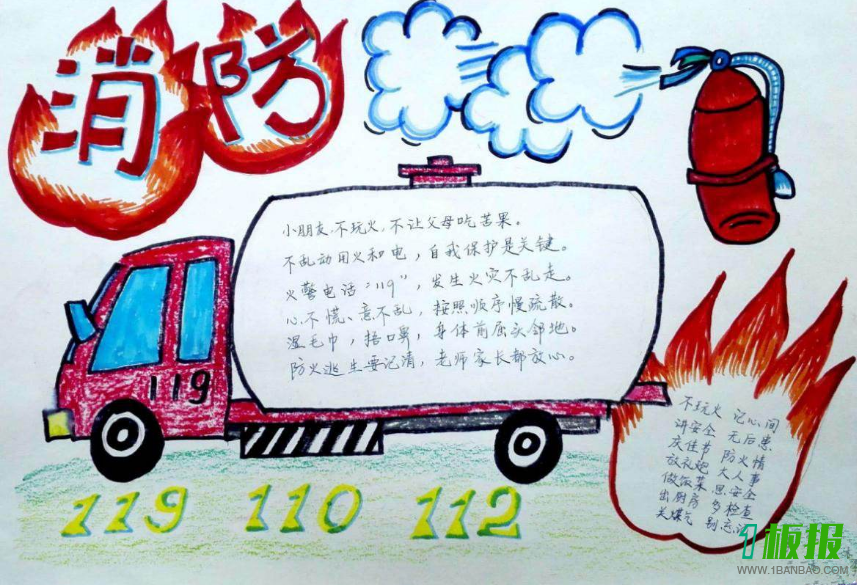 消防
小朋友,不玩火,不让父母吃苦果。
不乱动用火和电,自我保护是关键。
火警电话“119”,发生火灾不乱走。
心不慌、意不乱,按照顺序慢疏散。
湿毛巾,捂口鼻,身体前屈头邻地。
防火逃生要记清,老师家长都放心。
119
不玩火 记心间
讲安全 无后患
庆佳节 防火情
放礼炮 大人事
做饭菜 思安全
出厨房 多检查
关煤气 别忘
119 110 112
1板报
WWW.1BANBAO.COM